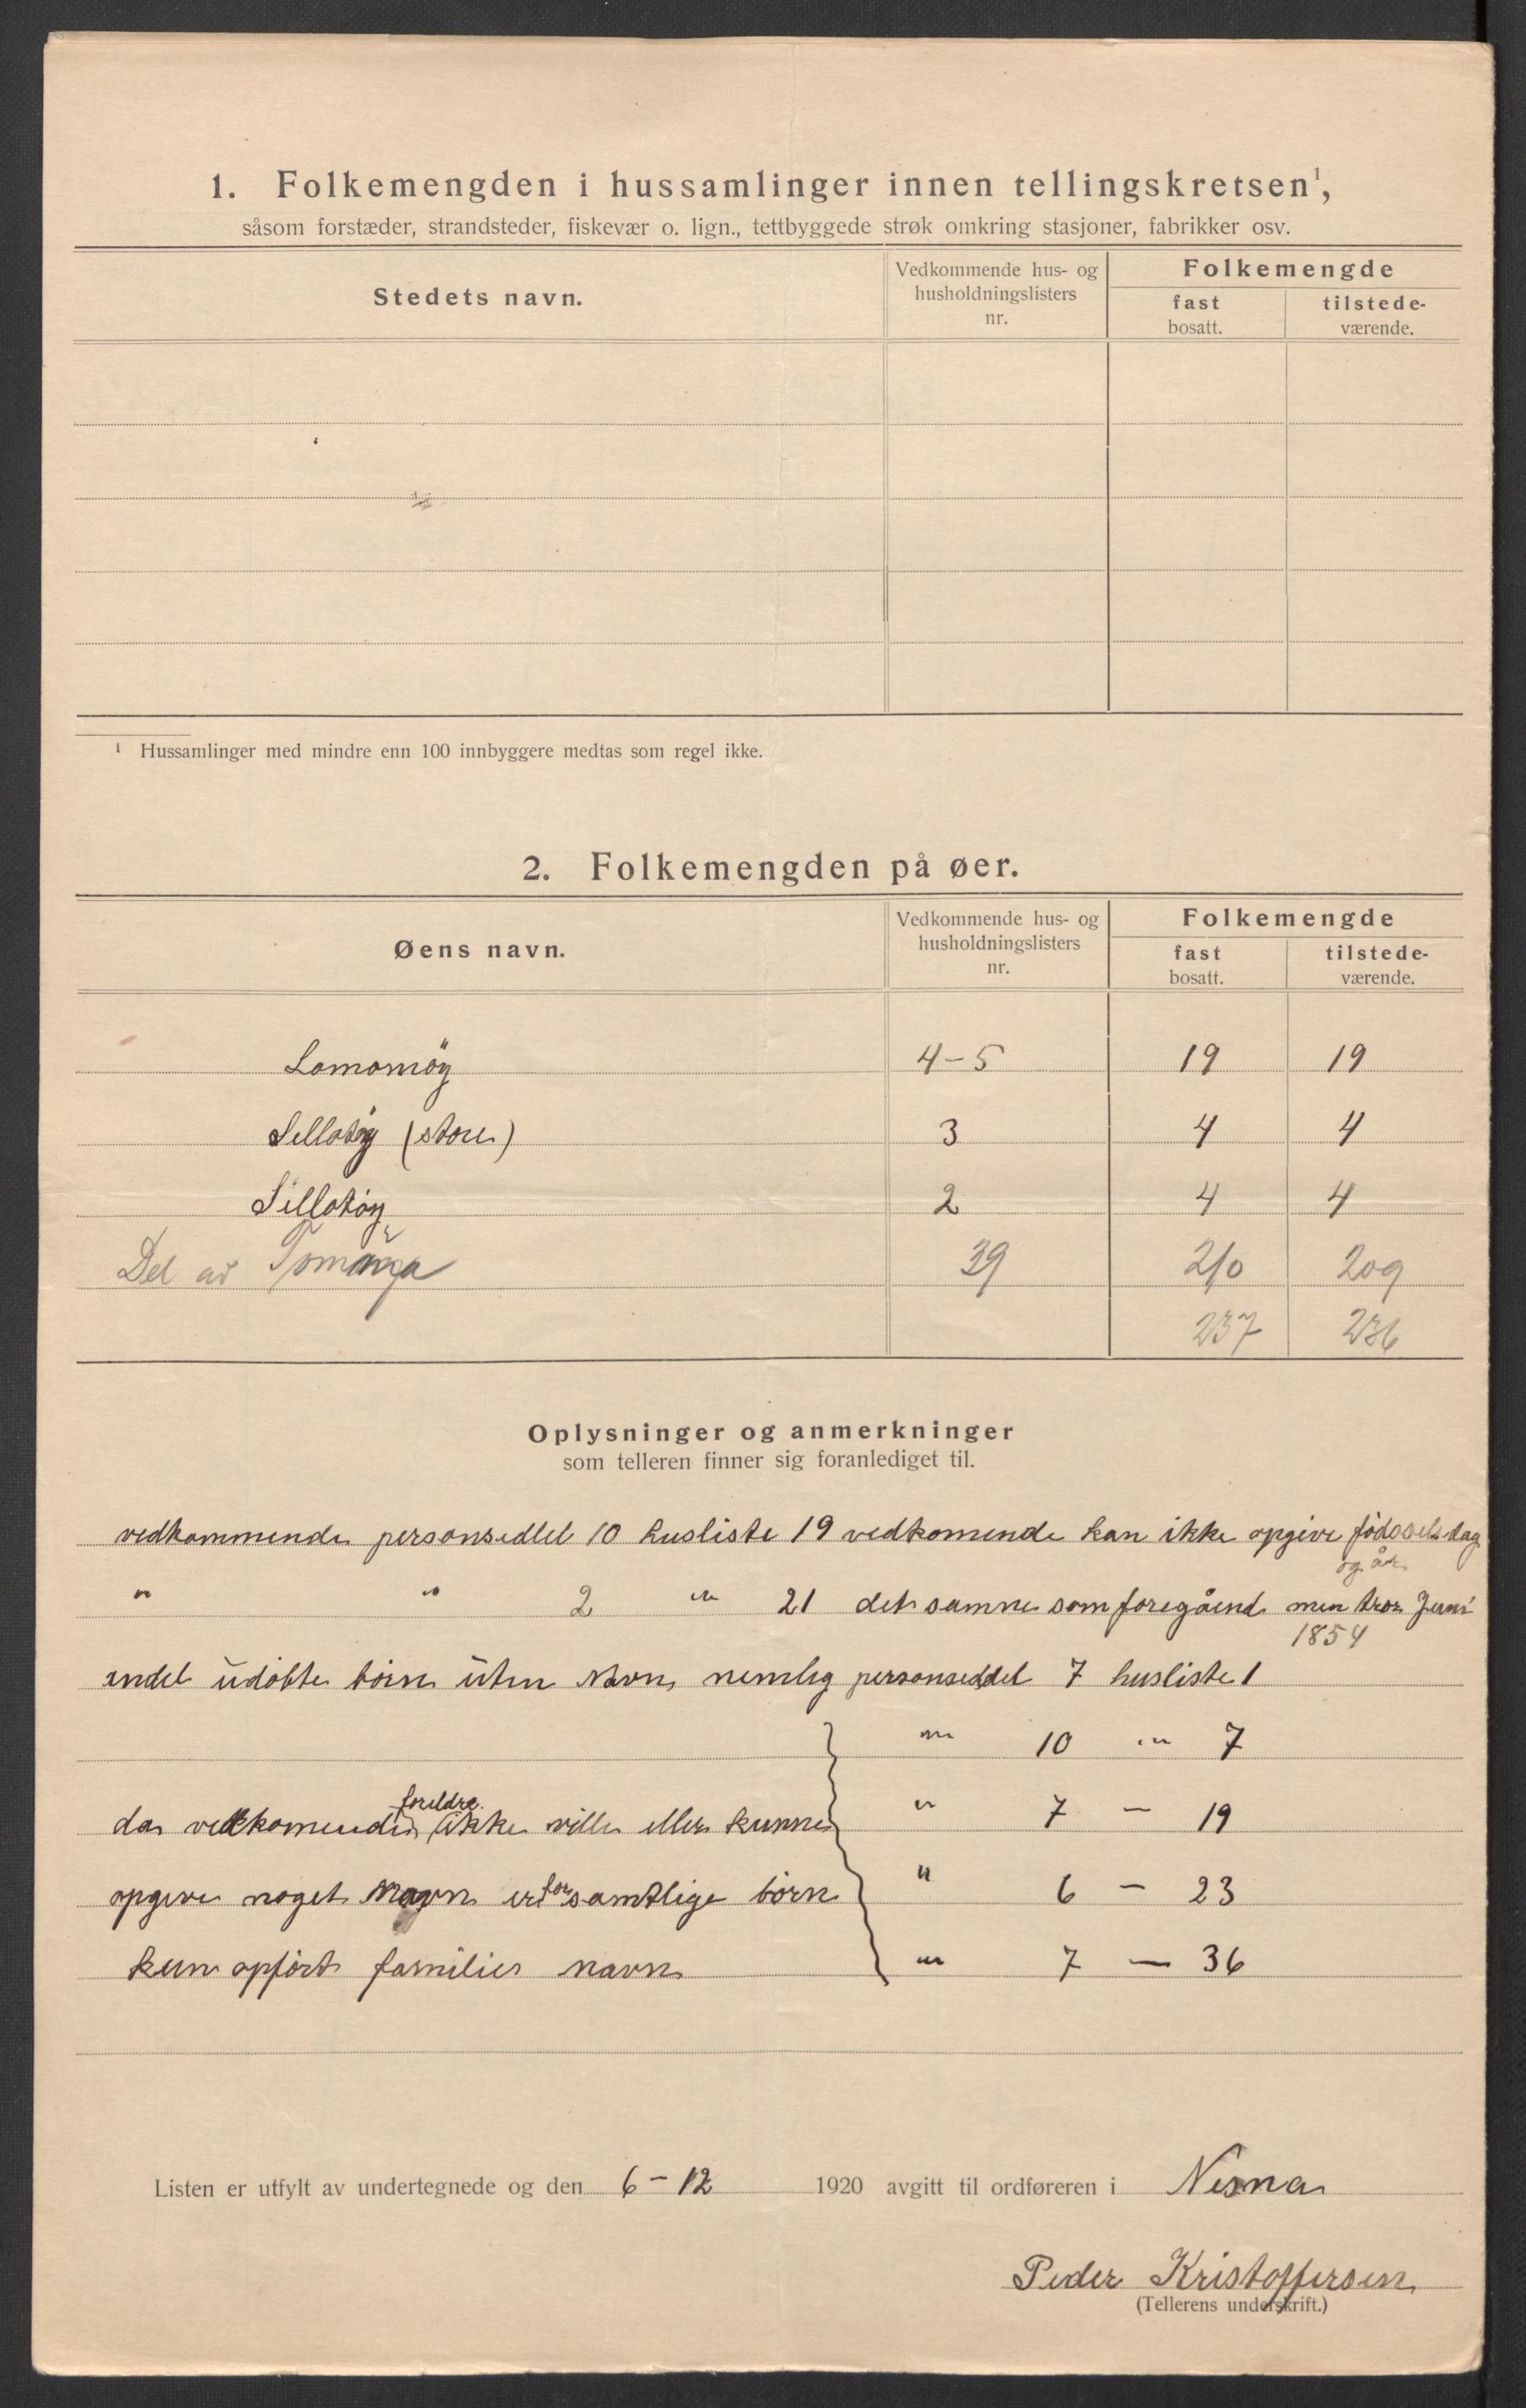 1. Folkemengden i hussamlinger innen tellingskretsen¹,
såsom forstæder, strandsteder, fiskevær o. lign., tettbyggede strøk omkring stasjoner, fabrikker osv.
Stedets navn.
Vedkommende hus- og husholdningslisters nr.
Folkemengde
fast bosatt.
tilstede-værende.
¹ Hussamlinger med mindre enn 100 innbyggere medtas som regel ikke.
2. Folkemengden på øer.
Øens navn.
Vedkommende hus- og husholdningslisters nr.
Folkemengde
fast bosatt.
tilstede-værende.
4-5 19 19
(store) 3 4 4
2 4 4
Del av 39 210 209
237 236
Oplysninger og anmerkninger
som telleren finner sig foranlediget til.
vedkommende personsedlel 10 husliste 19 vedkomende kan ikke opgive fødselsdag
og år
" " 2 " 21 det samme som foregåend men tror Juni
1854
endel udøbte børn uten Navn nemlig personseddel 7 husliste 1
" 10 " 7
foreldre
da vedkomende ikke ville eller kunne " 7 — 19
opgive noget Navn er for samtlige børn " 6 — 23
kun opført familie navn " 7 — 36
Listen er utfylt av undertegnede og den 6-12 1920 avgitt til ordføreren i Nesna
Peder Kristoffersen
(Tellerens underskrift.)